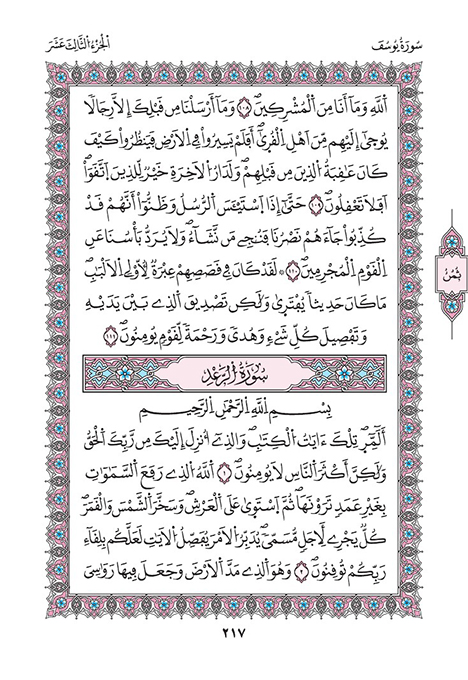 سُورَةُ يُوسُفَ
اَلْجُزْءُ الثَّالِثَ عَشَرَ
اَللَّهِ وَمَآ أَنَا مِنَ اَلْمُشْرِكِينَۖ ١٠٨ وَمَآ أَرْسَلْنَا مِن قَبْلِكَ إِلَّا رِجَالاٗ
يُوحَىٰٓ إِلَيْهِم مِّنَ اَهْلِ اِلْقُر۪ىٰٓۖ أَفَلَمْ يَسِيرُواْ فِي اِلَارْضِ فَيَنظُرُواْ كَيْفَ
كَانَ عَٰقِبَةُ اُلذِينَ مِن قَبْلِهِمْۖ وَلَدَارُ اُلَاخِرَةِ خَيْرٞ لِّلذِينَ اَتَّقَوَاْۖ
اَفَلَا تَعْقِلُونَۖ ١٠٩ حَتَّىٰٓ إِذَا اَسْتَيْـَٔسَ اَلرُّسُلُ وَظَنُّوٓاْ أَنَّهُمْ قَدْ
كُذِّبُواْ جَآءَهُمْ نَصْرُنَا فَنُـۨجِے مَن نَّشَآءُۖ وَلَا يُرَدُّ بَأْسُنَا عَنِ
اِلْقَوْمِ اِلْمُجْرِمِينَۖ ١١٠ لَقَدْ كَانَ فِي قَصَصِهِمْ عِبْرَةٞ لِّأُوْلِي اِلَالْبَٰبِۖ
مَا كَانَ حَدِيثاٗ يُفْتَر۪ىٰ وَلَٰكِن تَصْدِيقَ اَلذِے بَيْنَ يَدَيْهِ
وَتَفْصِيلَ كُلِّ شَےْءٖ وَهُدىٗ وَرَحْمَةٗ لِّقَوْمٖ يُومِنُونَۖ ١١١
ثُمُنُ
سُورَةُ اُلرَّعْدِ
بِسْمِ اِللَّهِ اِلرَّحْمَٰنِ اِلرَّحِيمِ
أَلَٓمِّٓر۪ۖ تِلْكَ ءَايَٰتُ اُلْكِتَٰبِۖ وَالذِےٓ أُنزِلَ إِلَيْكَ مِن رَّبِّكَ اَلْحَقُّۖ
وَلَٰكِنَّ أَكْثَرَ اَلنَّاسِ لَا يُومِنُونَۖ ١ اَللَّهُ اُلذِے رَفَعَ اَلسَّمَٰوَٰتِ
بِغَيْرِ عَمَدٖ تَرَوْنَهَاۖ ثُمَّ اَسْتَو۪ىٰ عَلَى اَلْعَرْشِۖ وَسَخَّرَ اَلشَّمْسَ وَالْقَمَرَۖ
كُلّٞ يَجْرِے لِأَجَلٖ مُّسَمّىٗۖ يُدَبِّرُ اُلَامْرَ يُفَصِّلُ اُلَايَٰتِ لَعَلَّكُم بِلِقَآءِ
رَبِّكُمْ تُوقِنُونَۖ ٢ وَهُوَ اَلذِے مَدَّ اَلَارْضَ وَجَعَلَ فِيهَا رَوَٰسِيَ
٢١٧